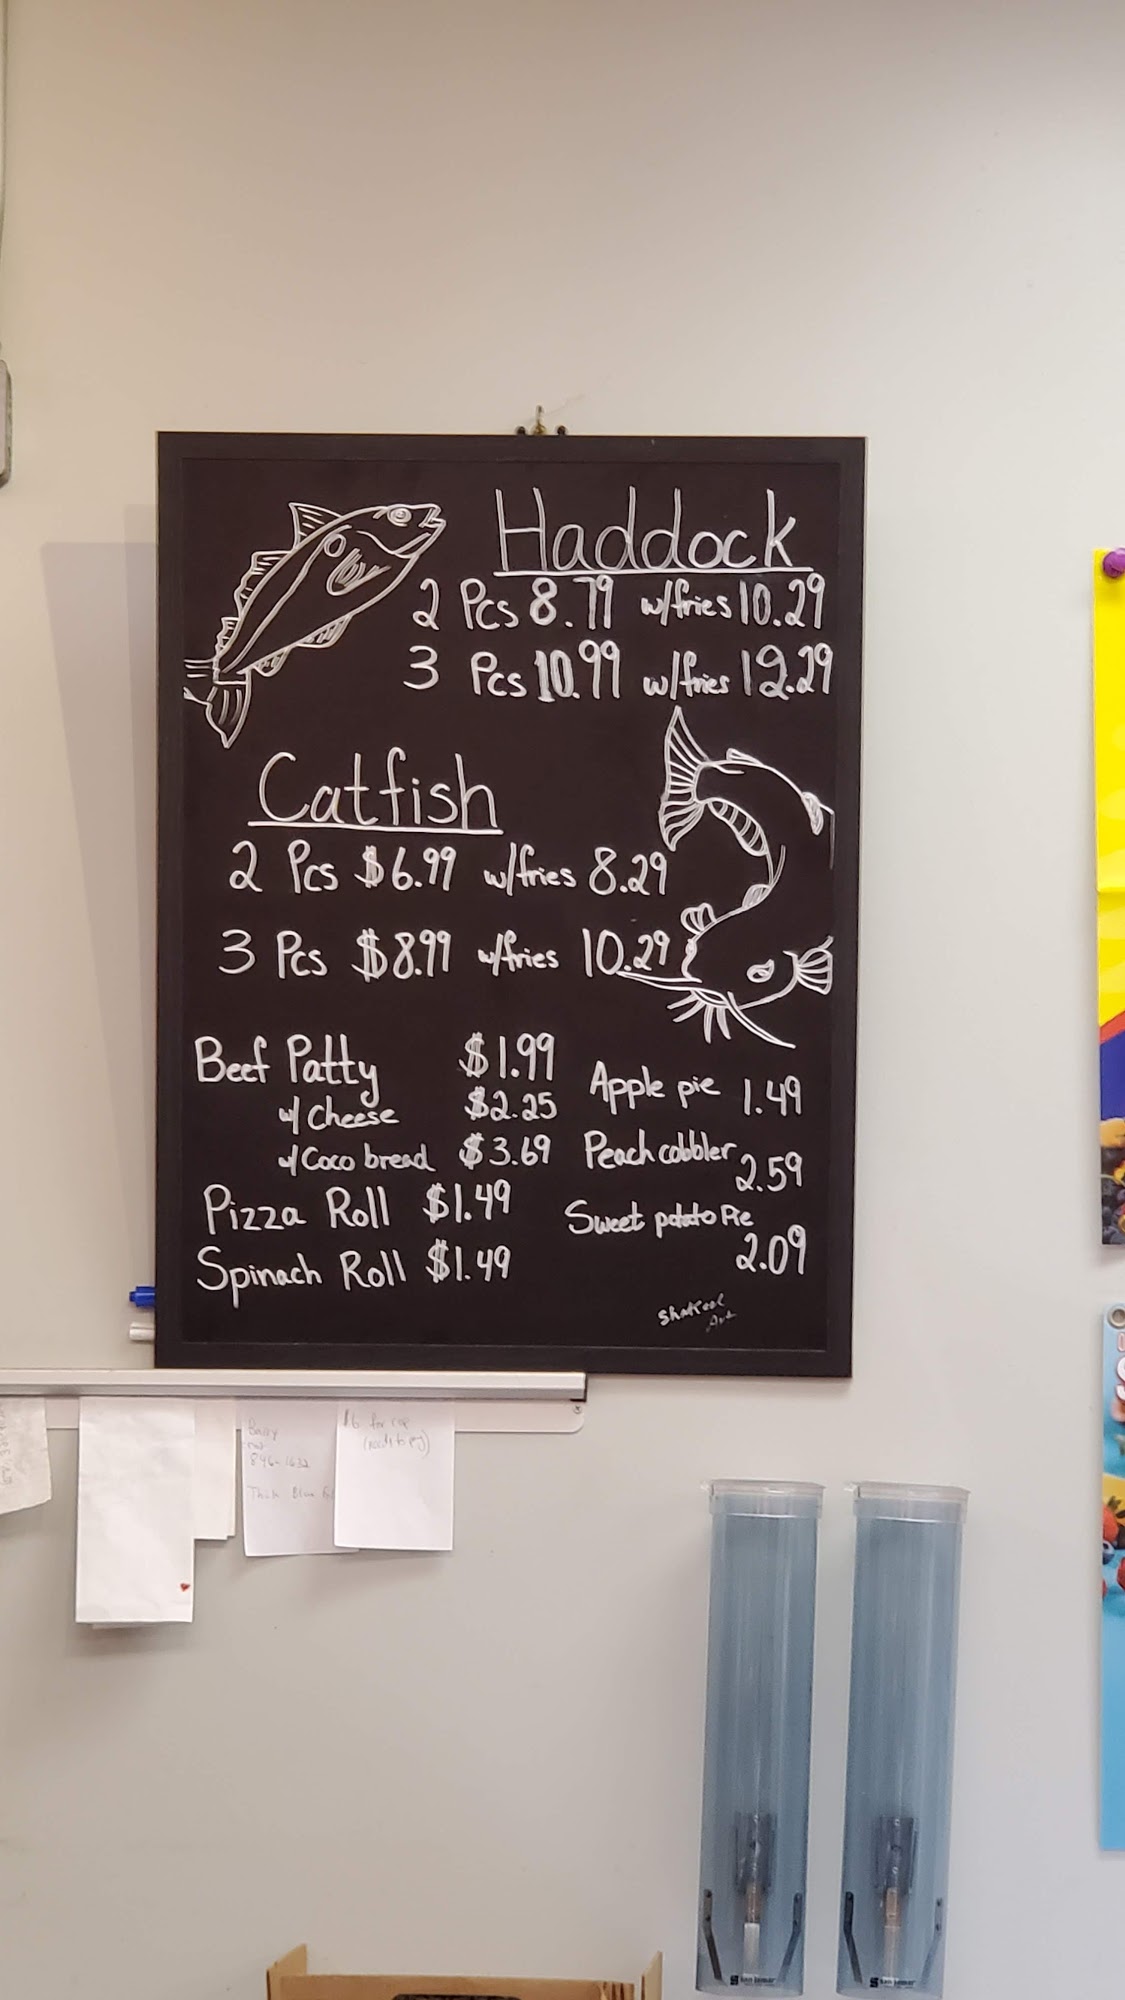 Haddock
2 Pcs 8.79 w/fries 10.29
3 Pcs 10.99 w/fries 12.29
Catfish
2 Pcs $6.99 w/fries 8.29
3 Pcs $8.99 w/fries 10.29
Beef Patty $1.99
w/ Cheese $2.25
w/ Coco bread $3.69
Pizza Roll $1.49
Spinach Roll $1.49
Apple pie 1.49
Peach cobbler
2.59
Sweet potato Pie
2.09
$6 for cup
san jamar
san jamar